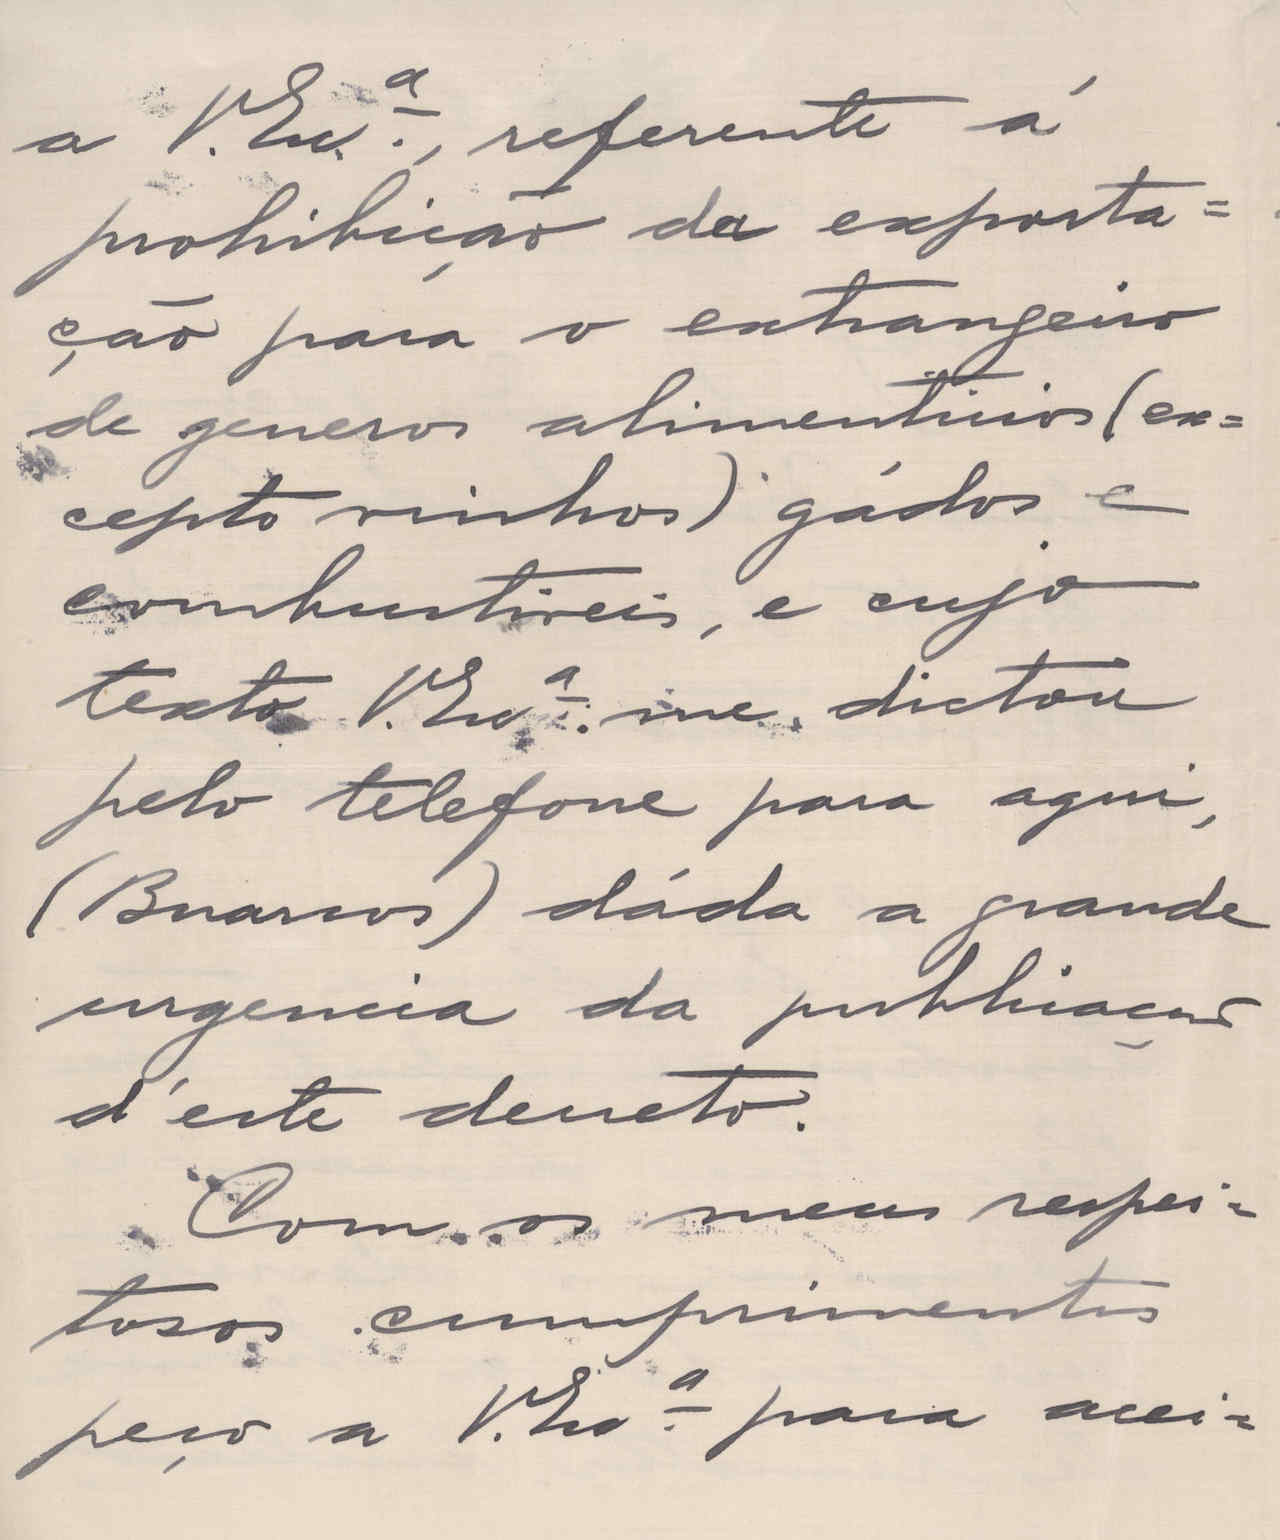 a V. Ex.ª, referente á
prohibição da exporta=
ção para o extrangeiro
de generos alimenticios (ex=
cepto vinhos) gádos e
combustiveis, e cujo
texto V. Exª. me dictou
pelo telefone para aqui,
(Buarcos) dáda a grande
urgencia da publicação
d'este decreto.
Com os meus respei=
tosos cumprimentos
peço a V. Exª. para acei=